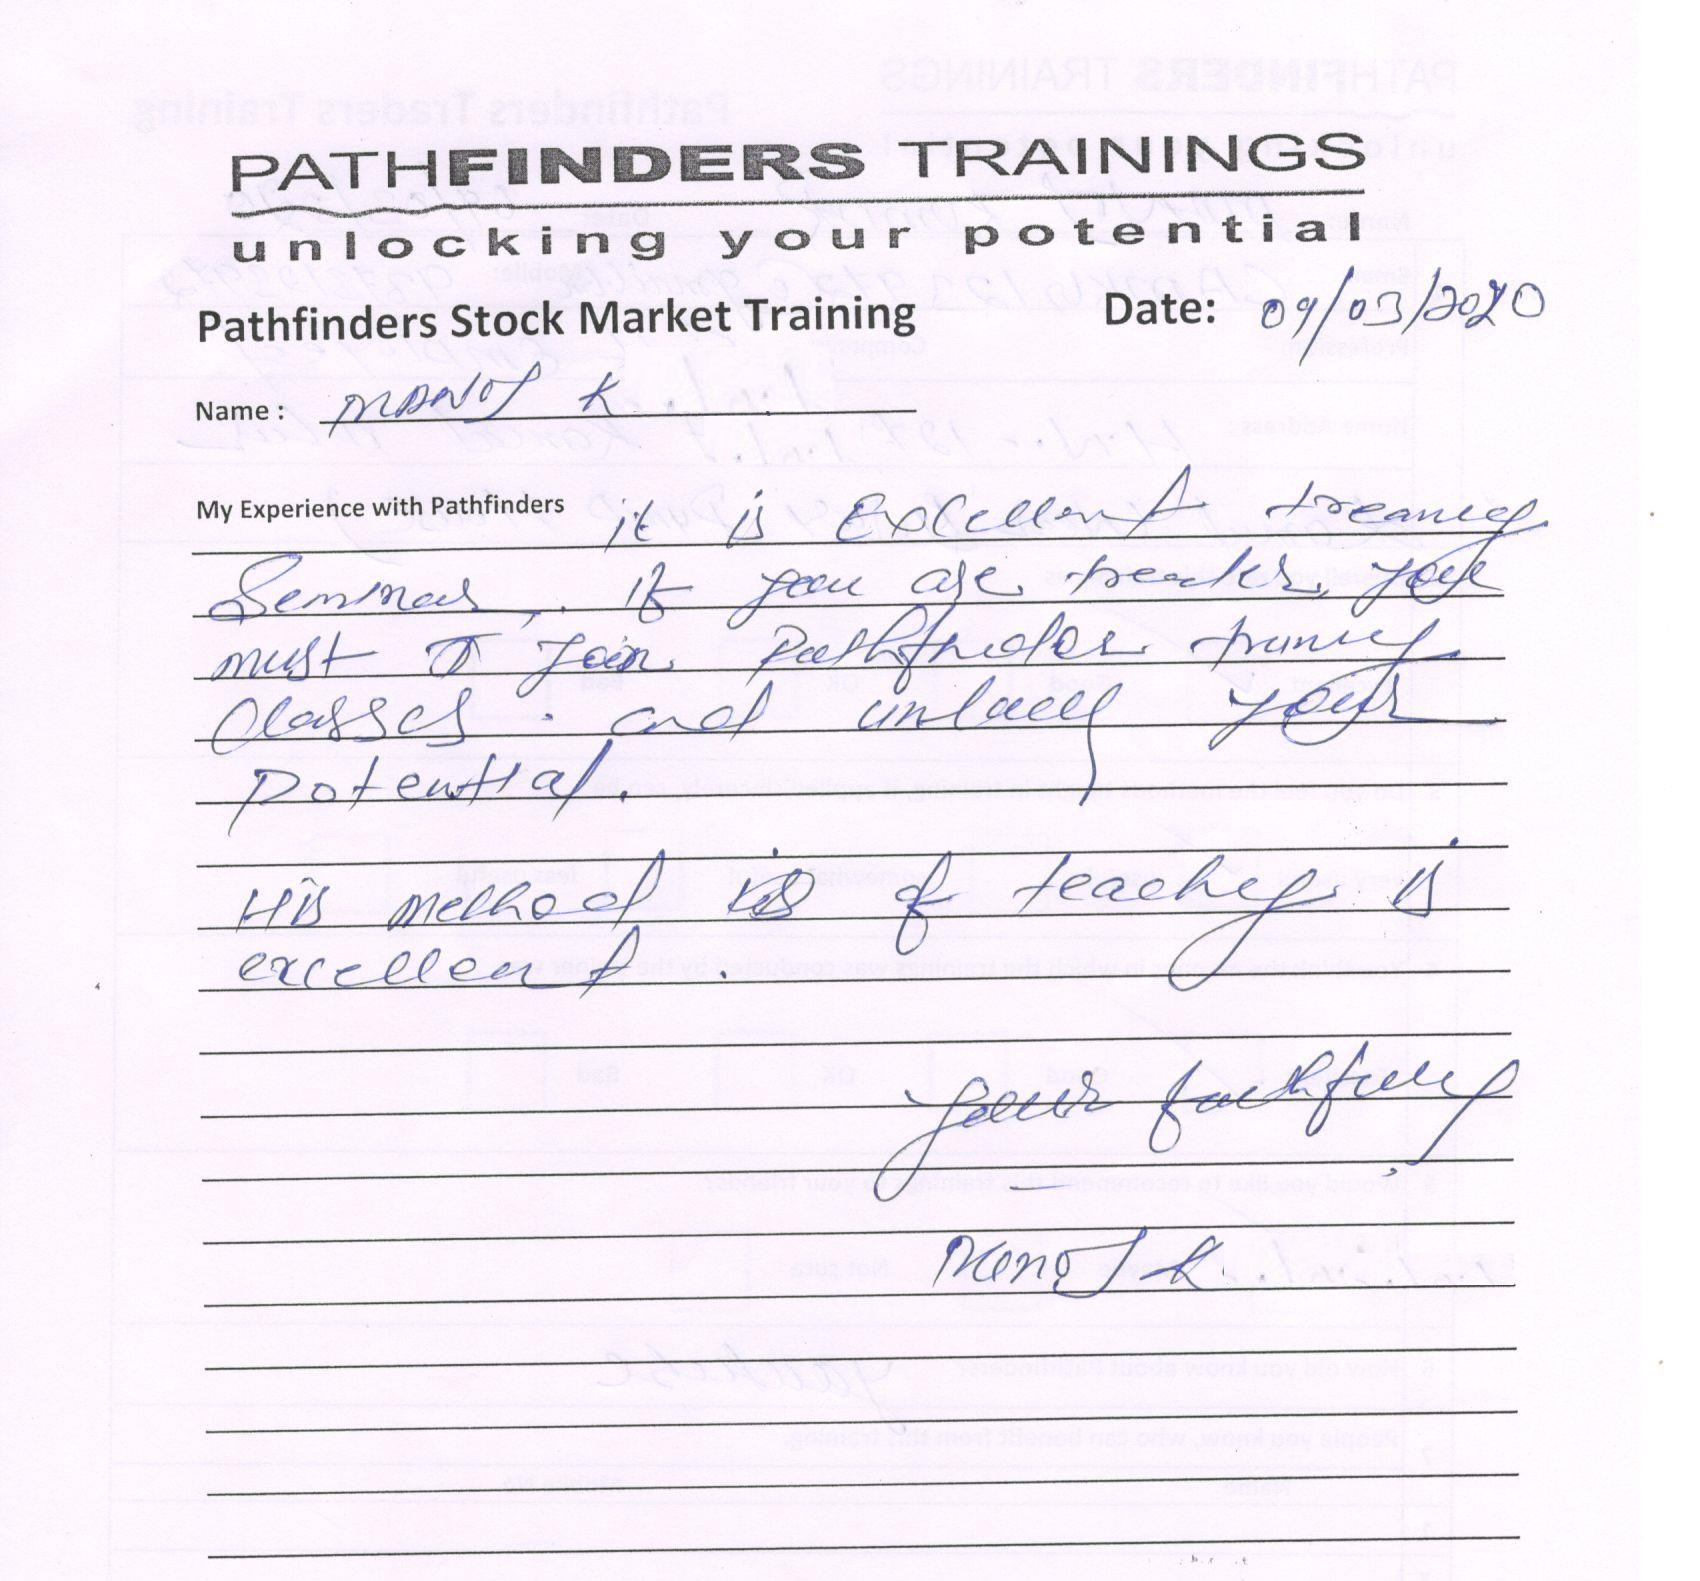 PATHFINDERS TRAININGS
unlocking your potential
Pathfinders Stock Market Training Date: 09/03/2020
Name : MANOJ K
My Experience with Pathfinders it is Excellent treaning
Seminar, if you are treader, you
must to join Pathfinder traning
classes. and unlock your
Potential.
His method of teaching is
excellent.
yours faithfully
Manoj K.